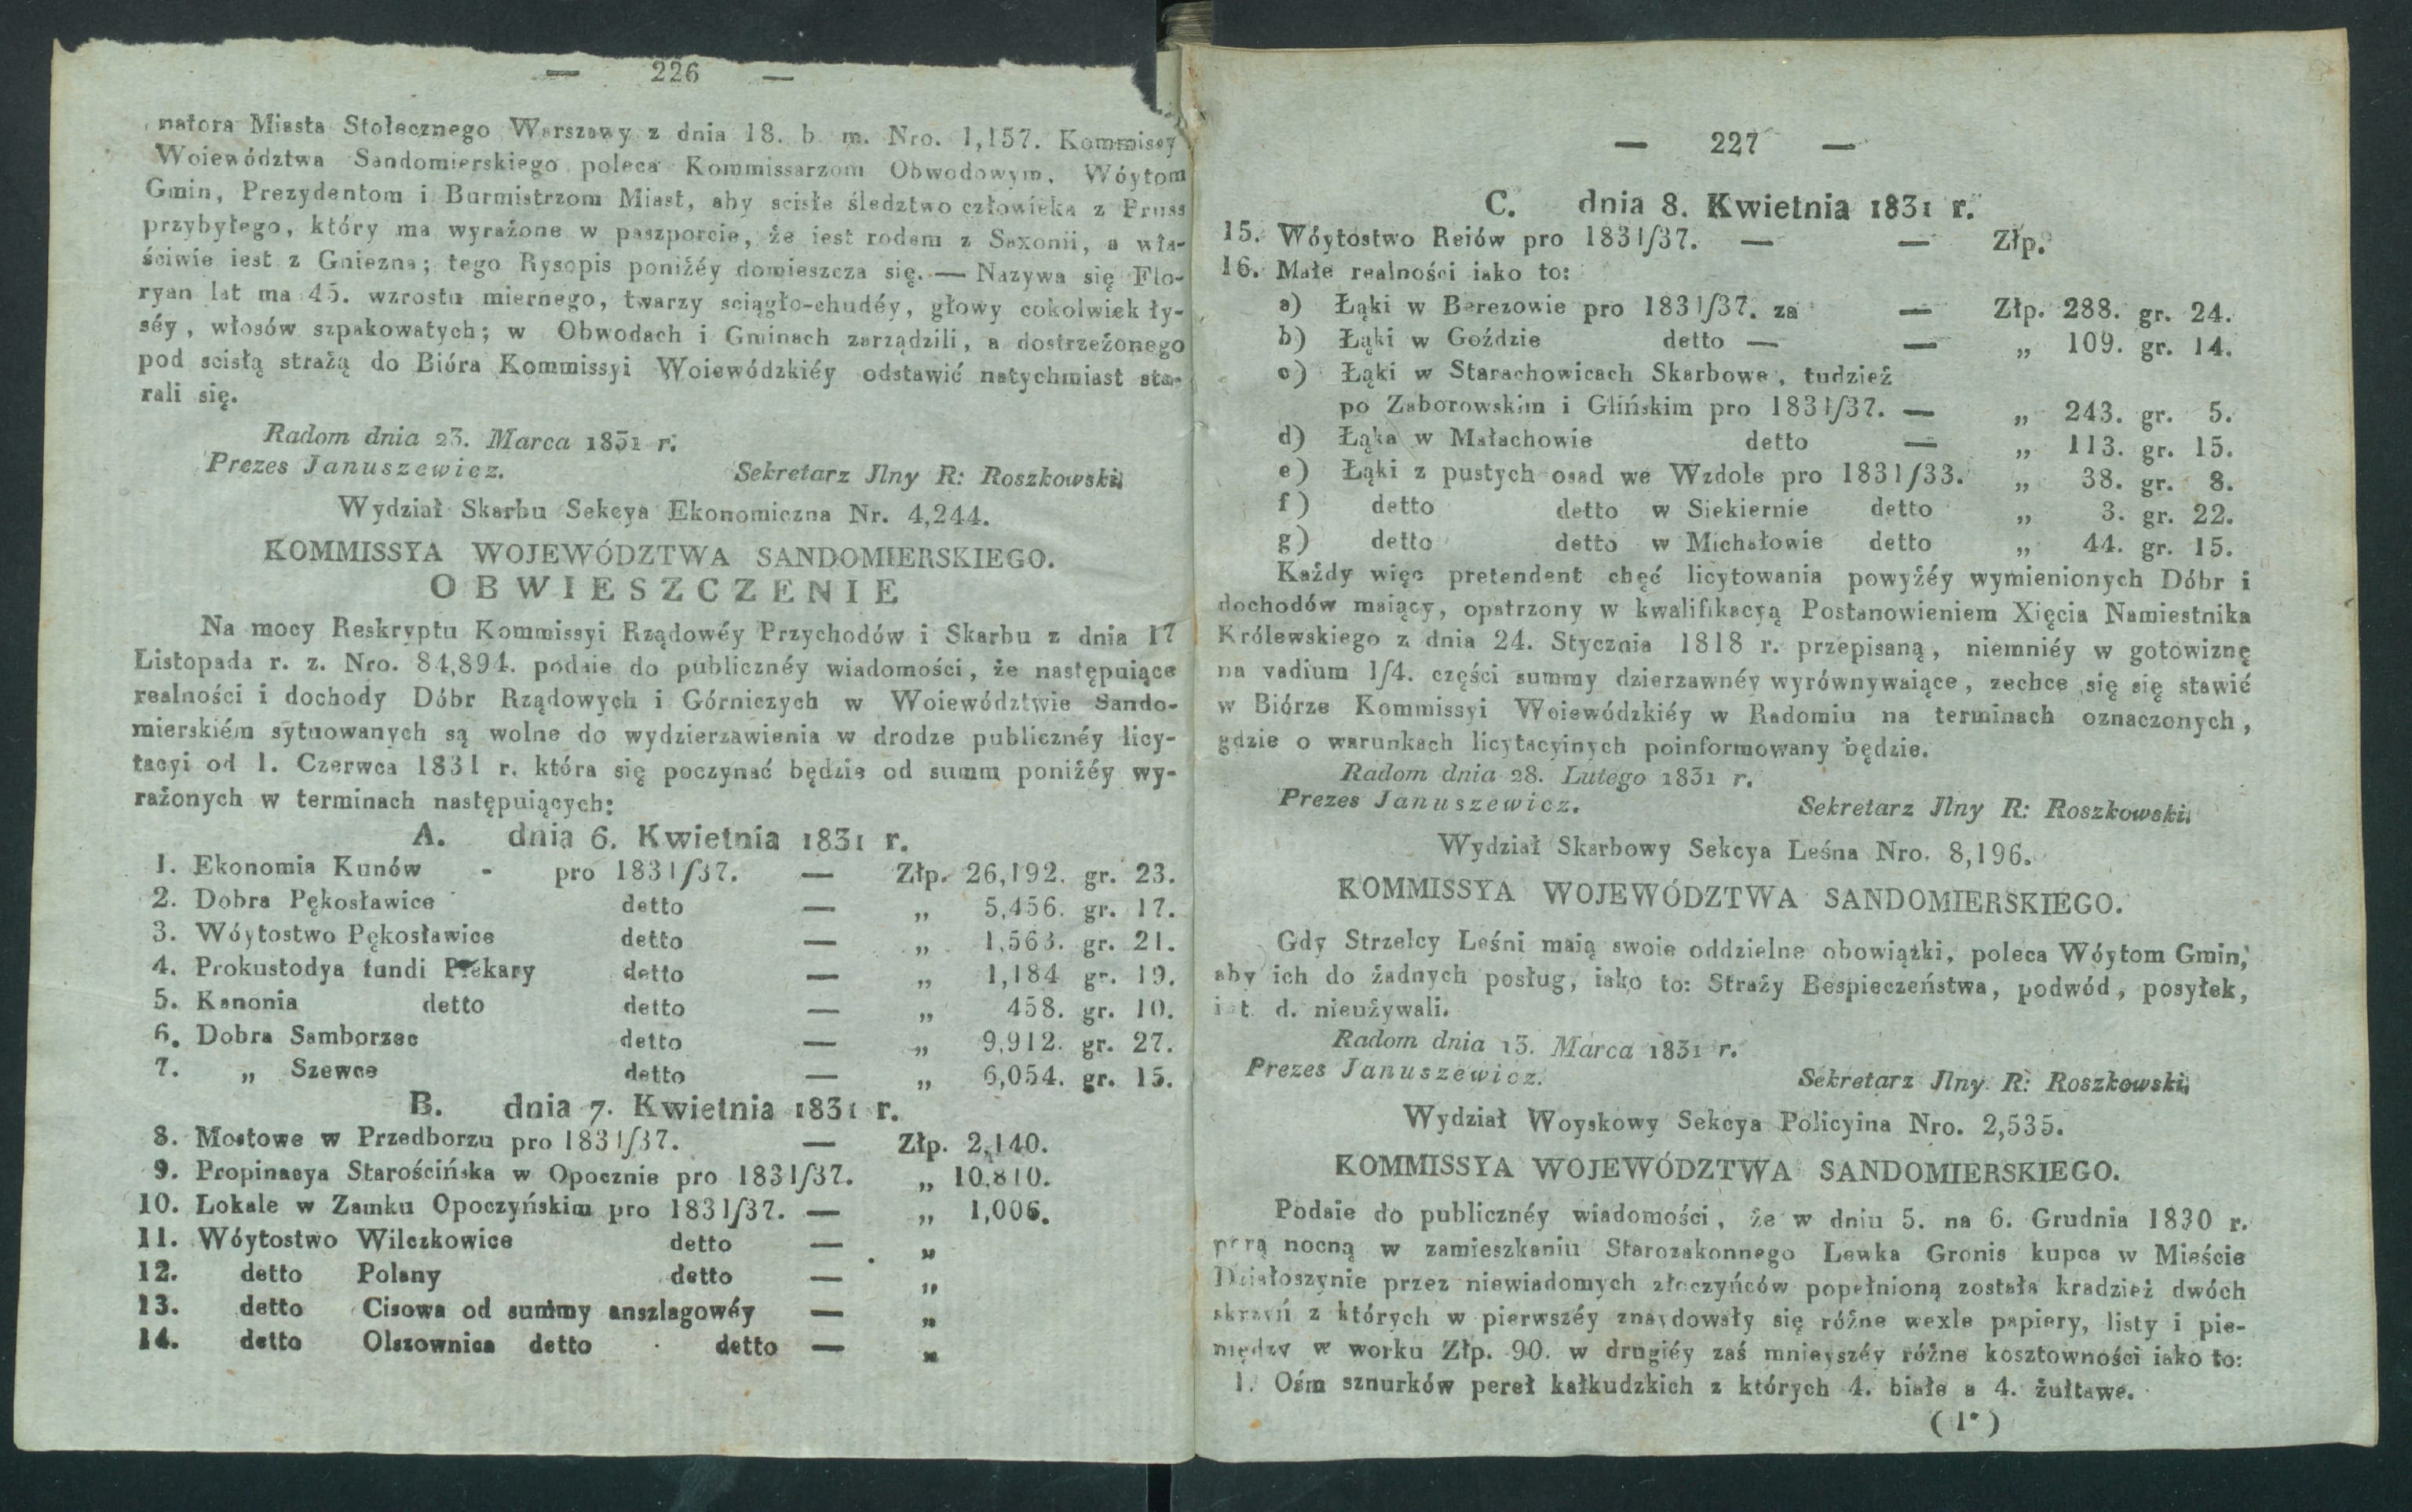 — 226 —
natora Miasta Stołecznego Warszawy z dnia 18. b. m. Nro. 1,157. Kommissy
Woiewództwa Sandomierskiego poleca Kommissarzom Obwodowym, Wóytom
Gmin, Prezydentom i Burmistrzom Miast, aby scisłe śledztwo człowieka z Pruss
przybyłego, który ma wyrażone w paszporcie, że iest rodem z Saxonii, a wła-
ściwie iest z Gniezna; tego Rysopis poniżéy domieszcza się. — Nazywa się Flo-
ryan lat ma 45. wzrostu miernego, twarzy sciągło-chudéy, głowy cokolwiek ły-
séy, włosów szpakowatych; w Obwodach i Gminach zarządzili, a dostrzeżonego
pod scisłą strażą do Bióra Kommissyi Woiewódzkiéy odstawić natychmiast sta-
rali się.
Radom dnia 23. Marca 1831 r.
Prezes Januszewicz. Sekretarz Jlny R: Roszkowski.
Wydział Skarbu Sekcya Ekonomiczna Nr. 4,244.
KOMMISSYA WOJEWÓDZTWA SANDOMIERSKIEGO.
OBWIESZCZENIE
Na mocy Reskryptu Kommissyi Rządowéy Przychodów i Skarbu z dnia 17
Listopada r. z. Nro. 84,894. podaie do publicznéy wiadomości, że następuiące
realności i dochody Dóbr Rządowych i Górniczych w Woiewództwie Sando-
mierskiém sytuowanych są wolne do wydzierzawienia w drodze publicznéy licy-
tacyi od 1. Czerwca 1831 r. która się poczynać będzie od summ poniżéy wy-
rażonych w terminach następuiących:
A. dnia 6. Kwietnia 1831 r.
1. Ekonomia Kunów - pro 1831/37. — Złp. 26,192. gr. 23.
2. Dobra Pękosławice detto — „ 5,456. gr. 17.
3. Wóytostwo Pękosławice detto — „ 1,563. gr. 21.
4. Prokustodya fundi Piekary detto — „ 1,184 gr. 19.
5. Kanonia detto detto — „ 458. gr. 10.
6. Dobra Samborzec detto — „ 9,912. gr. 27.
7. „ Szewce detto — „ 6,054. gr. 15.
B. dnia 7. Kwietnia 1831 r.
8. Mostowe w Przedborzu pro 1831/37. — Złp. 2,140.
9. Propinacya Starościńska w Opocznie pro 1831/37. „ 10,810.
10. Lokale w Zamku Opoczyńskim pro 1831/37. — „ 1,006.
11. Wóytostwo Wilczkowice detto — „
12. detto Polany detto — „
13. detto Cisowa od summy anszlagowéy — „
14. detto Olszownica detto detto — „
— 227 —
C. dnia 8. Kwietnia 1831 r.
15. Wóytostwo Reiów pro 1831/37. — — Złp.
16. Małe realności iako to:
a) Łąki w Berezowie pro 1831/37. za — Złp. 288. gr. 24.
b) Łąki w Goździe detto — — „ 109. gr. 14.
c) Łąki w Starachowicach Skarbowe, tudzież
po Zaborowskim i Glińskim pro 1831/37. — „ 243. gr. 5.
d) Łąka w Małachowie detto — „ 113. gr. 15.
e) Łąki z pustych osad we Wzdole pro 1831/33. „ 38. gr. 8.
f) detto detto w Siekiernie detto „ 3. gr. 22.
g) detto detto w Michałowie detto „ 44. gr. 15.
Każdy więc pretendent chęć licytowania powyżéy wymienionych Dóbr i
dochodów maiący, opatrzony w kwalifikacyą Postanowieniem Xięcia Namiestnika
Królewskiego z dnia 24. Stycznia 1818 r. przepisaną, niemniéy w gotowiznę
na vadium 1/4. części summy dzierzawnéy wyrównywaiące, zechce się się stawić
w Biórze Kommissyi Woiewódzkiéy w Radomiu na terminach oznaczonych,
gdzie o warunkach licytacyinych poinformowany będzie.
Radom dnia 28. Lutego 1831 r.
Prezes Januszewicz. Sekretarz Jlny R: Roszkowski.
Wydział Skarbowy Sekcya Leśna Nro. 8,196.
KOMMISSYA WOJEWÓDZTWA SANDOMIERSKIEGO.
Gdy Strzelcy Leśni maią swoie oddzielne obowiązki, poleca Wóytom Gmin,
aby ich do żadnych posług, iako to: Straży Bespieczeństwa, podwód, posyłek,
i t. d. nieużywali.
Radom dnia 13. Marca 1831 r.
Prezes Januszewicz. Sekretarz Jlny R: Roszkowski.
Wydział Woyskowy Sekcya Policyina Nro. 2,535.
KOMMISSYA WOJEWÓDZTWA SANDOMIERSKIEGO.
Podaie do publicznéy wiadomości, że w dniu 5. na 6. Grudnia 1830 r.
porą nocną w zamieszkaniu Starozakonnego Lewka Gronis kupca w Mieście
Działoszynie przez niewiadomych złoczyńców popełnioną została kradzież dwóch
skrzyń z których w pierwszéy znaydowały się różne wexle papiery, listy i pie-
niędzy w worku Złp. 90. w drugiéy zaś mnieyszéy różne kosztowności iako to:
1. Ośm sznurków pereł kałkudzkich z których 4. białe a 4. żułtawe.
(1*)